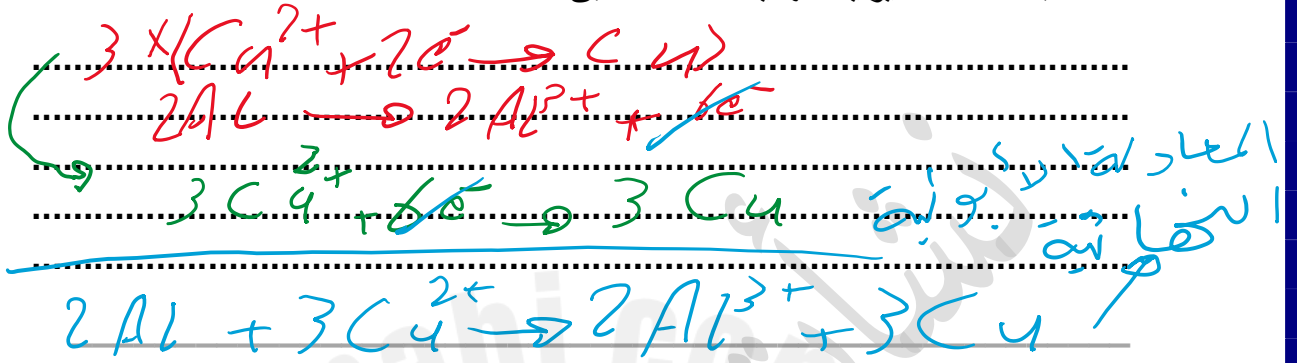 3 ×(Cu²⁺ + 2e⁻ → Cu)
2Al → 2Al³⁺ + 6e⁻
3Cu²⁺ + 6e⁻ → 3Cu
المعادلة الأيونية
النهائية
2Al + 3Cu²⁺ → 2Al³⁺ + 3Cu